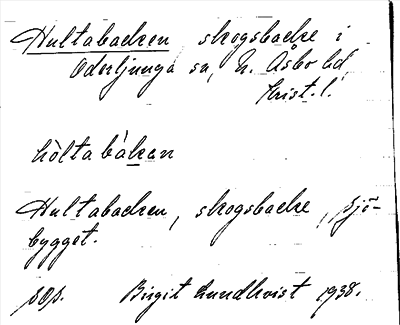 Hultabacken skogsbacke i
Oderljunga sn, N. Åsbo hd,
Krist. l.
hòltabàkan
Hultabacken, skogsbacke, sjö-
bygget.
Birgit Lundkvist 1938.